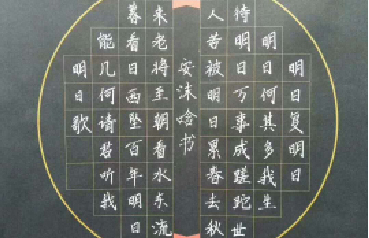 明日复明日
明日何其多我生
待明日万事成蹉跎世
人苦被明日累春去秋
来老将至朝看水东流
暮看日西坠百年明日
能几何请君听我
明日歌
安沫晗书